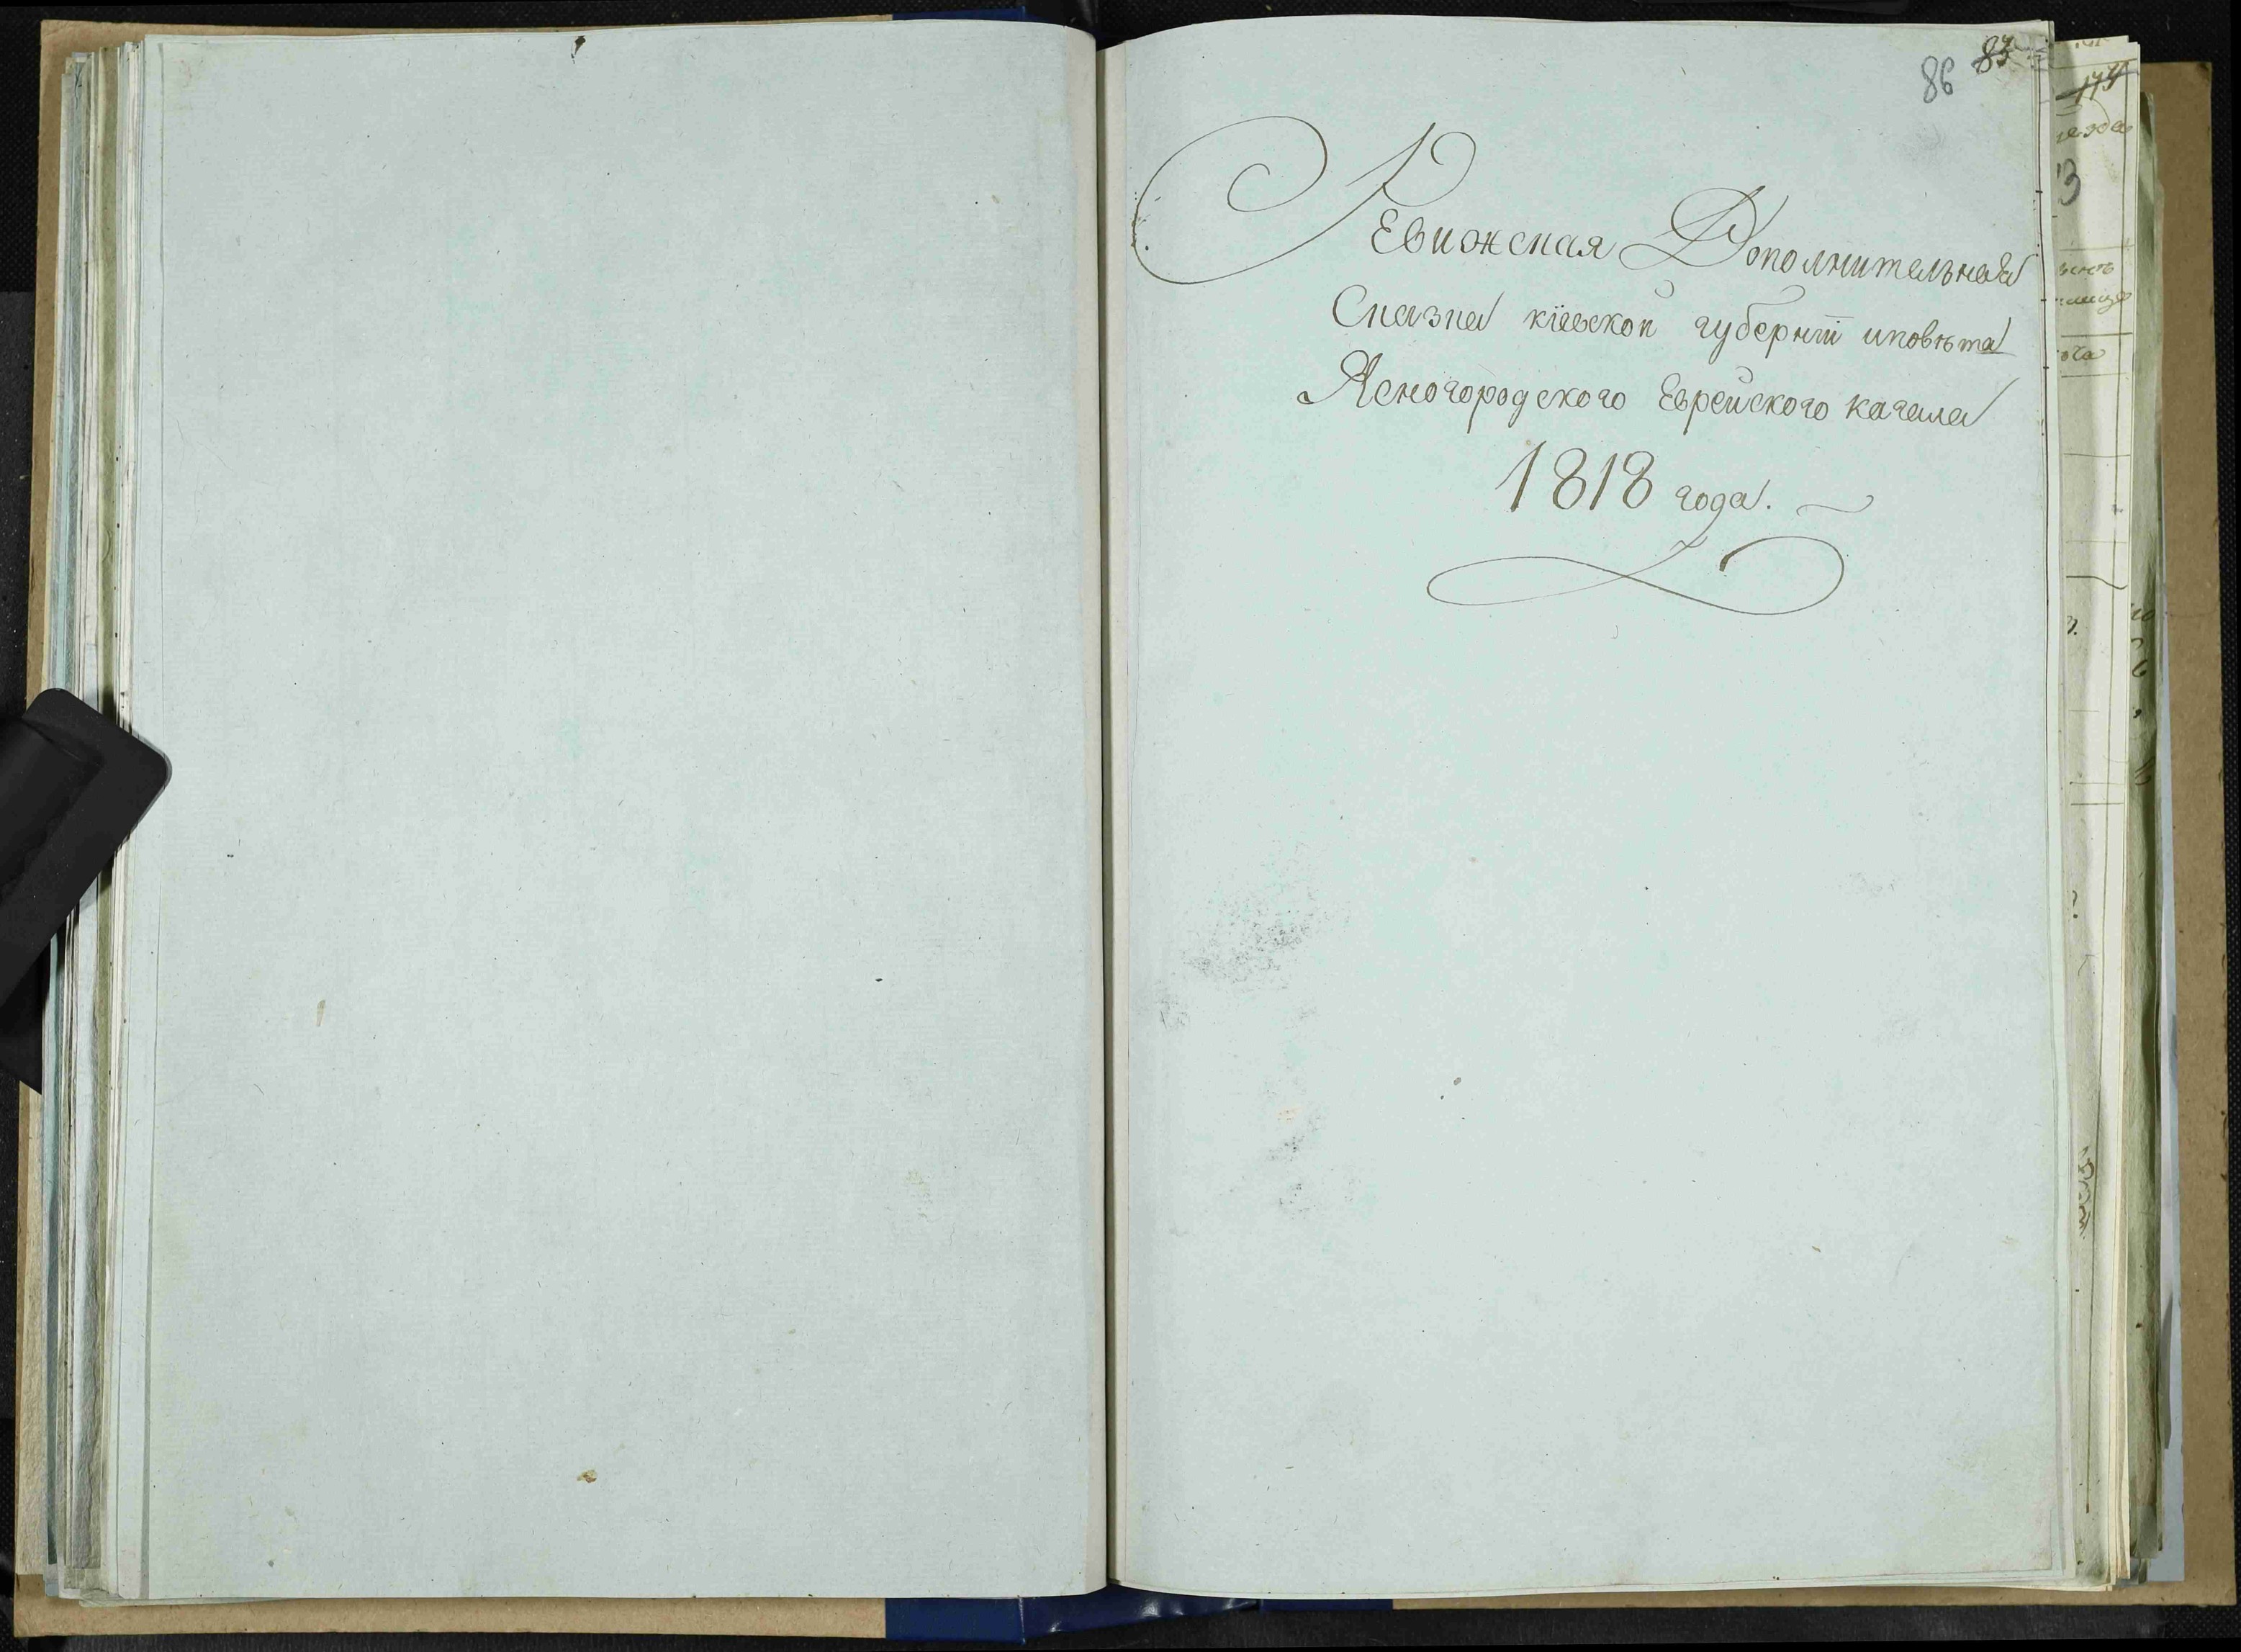 86 83
Ревижская Дополнительная
Сказка кіевскои губерніи иповѣта
Ясногородского Еврейского кагала
1818 года.